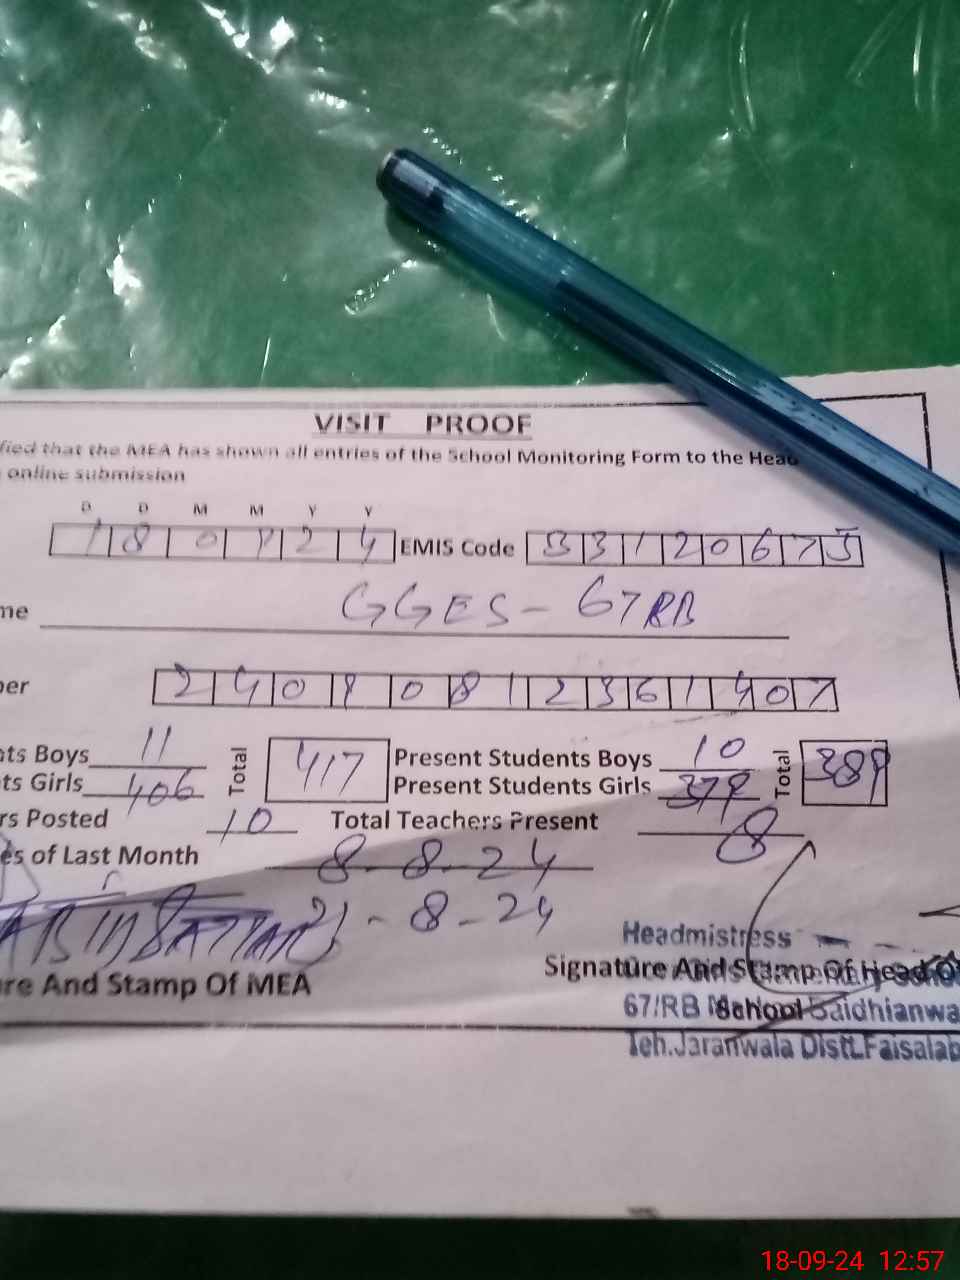 VISIT PROOF
fied that the MEA has shown all entries of the School Monitoring Form to the Head
online submission
D D M M Y Y
1 8 0 9 2 4 EMIS Code 3 3 1 2 0 6 7 5
me GGES - 67 RB
ber 2 4 0 9 0 8 1 2 3 6 1 4 0 7
nts Boys 11 Total 417 Present Students Boys 10 Total 389
ts Girls 406 Present Students Girls 379
rs Posted 10 Total Teachers Present 8
es of Last Month 8-8-24
21-8-24
Headmistress
re And Stamp Of MEA Signature And Stamp Of Head Of
67/RB School Baidhianwa
Teh.Jaranwala Distt.Faisalab
18-09-24 12:57